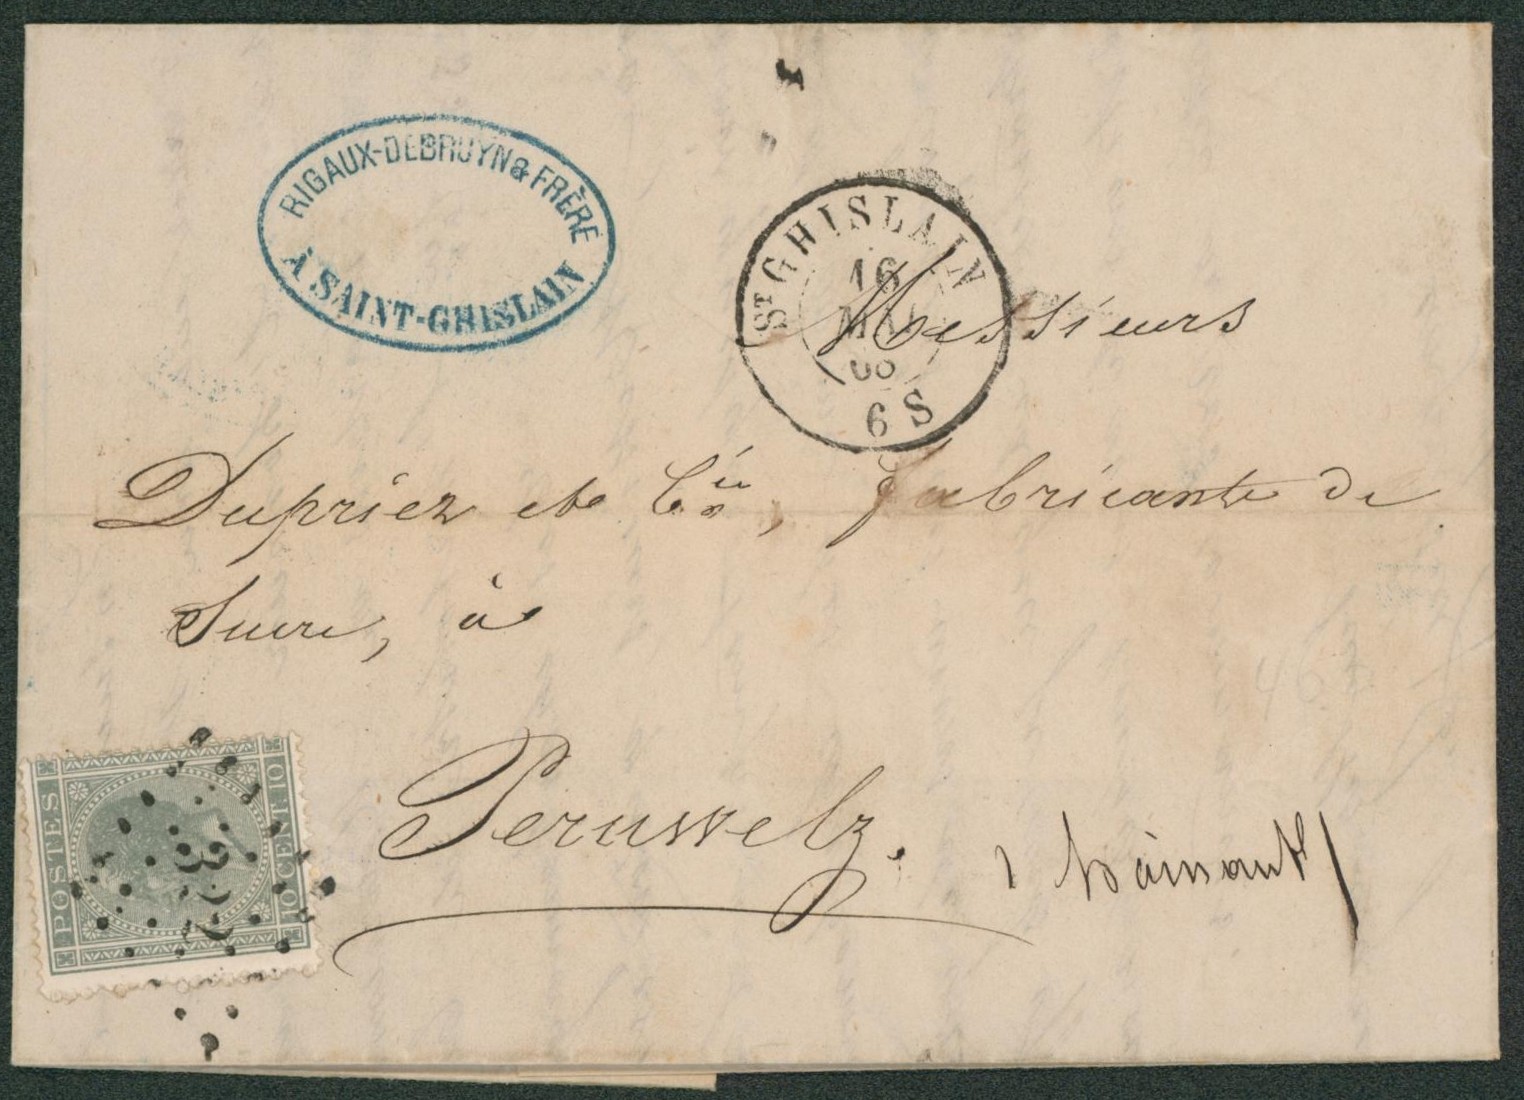 RIGAUX-DEBRUYN & FRÈRE
À SAINT-GHISLAIN
ST GHISLAIN
16
MAI
68
6 S
Messieurs
Dupriez et Cie, fabricants de
Sucre, à
Peruwelz.
Hainaut
POSTES
10 CENT. 10